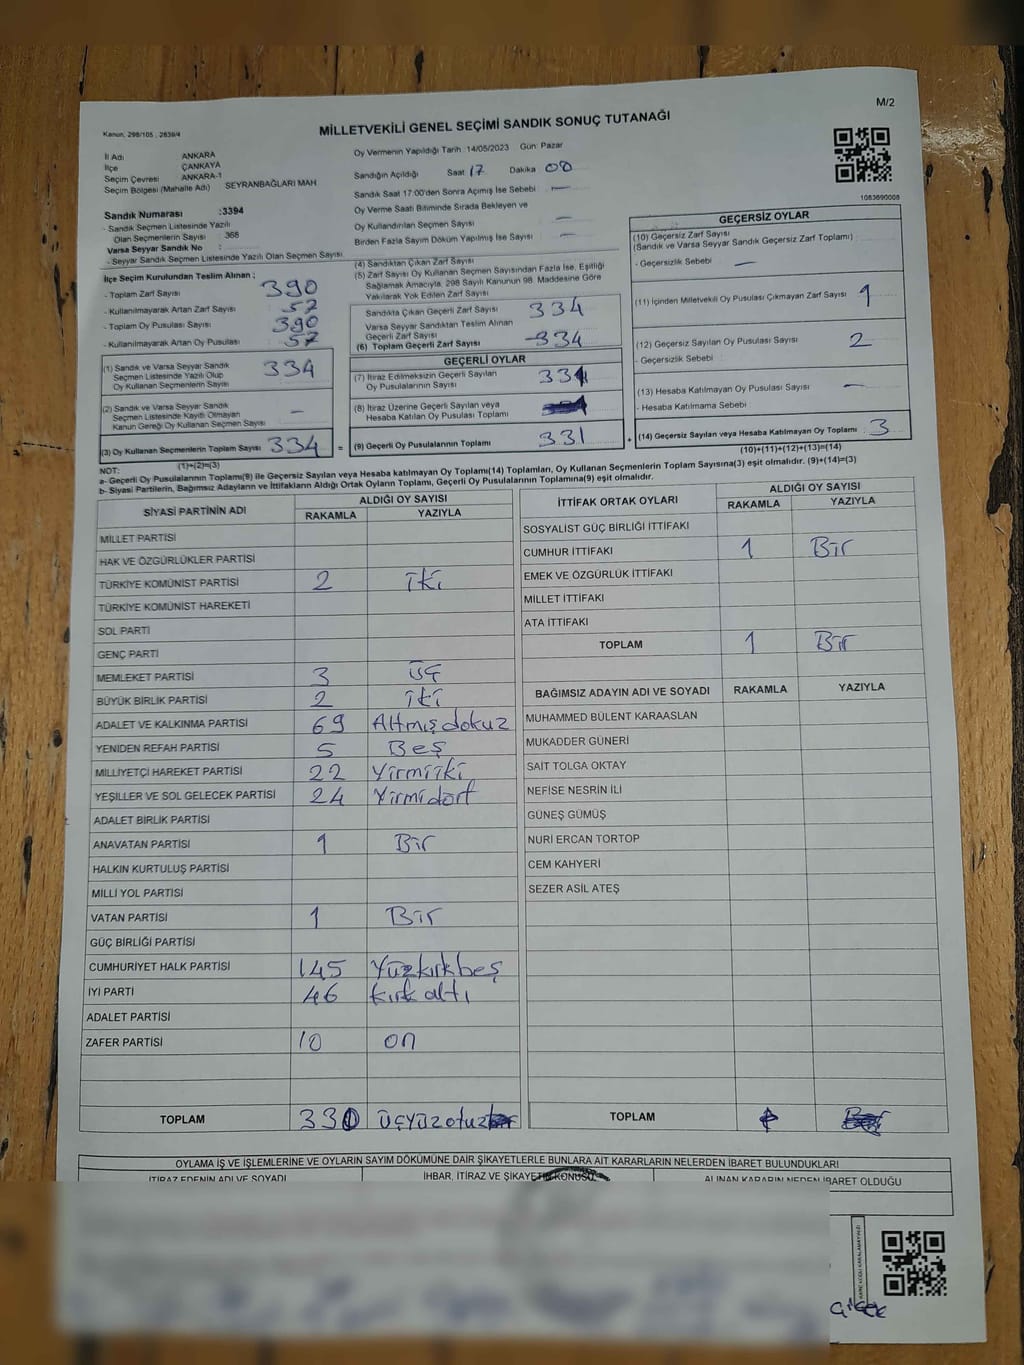 M/2
Kanun, 298/105 ; 2839/4
MİLLETVEKİLİ GENEL SEÇİMİ SANDIK SONUÇ TUTANAĞI
İl Adı ANKARA
İlçe ÇANKAYA
Seçim Çevresi ANKARA-1
Seçim Bölgesi (Mahalle Adı) SEYRANBAĞLARI MAH
Sandık Numarası :3394
- Sandık Seçmen Listesinde Yazılı
Olan Seçmenlerin Sayısı : 368
Varsa Seyyar Sandık No :
- Seyyar Sandık Seçmen Listesinde Yazılı Olan Seçmen Sayısı
Oy Vermenin Yapıldığı Tarih :14/05/2023 Gün: Pazar
Sandığın Açıldığı Saat 17 Dakika 00
Sandık Saat 17:00'den Sonra Açılmış İse Sebebi —
Oy Verme Saati Bitiminde Sırada Bekleyen ve
Oy Kullandırılan Seçmen Sayısı —
Birden Fazla Sayım Döküm Yapılmış İse Sayısı —
1083690008
İlçe Seçim Kurulundan Teslim Alınan ;
- Toplam Zarf Sayısı 390
- Kullanılmayarak Artan Zarf Sayısı 57
- Toplam Oy Pusulası Sayısı 390
- Kullanılmayarak Artan Oy Pusulası 57
(1) Sandık ve Varsa Seyyar Sandık
Seçmen Listesinde Yazılı Olup
Oy Kullanan Seçmenlerin Sayısı 334
(2) Sandık ve Varsa Seyyar Sandık
Seçmen Listesinde Kayıtlı Olmayan
Kanun Gereği Oy Kullanan Seçmen Sayısı —
(3) Oy Kullanan Seçmenlerin Toplam Sayısı 334 =
(1)+(2)=(3)
(4) Sandıktan Çıkan Zarf Sayısı
(5) Zarf Sayısı Oy Kullanan Seçmen Sayısından Fazla İse, Eşitliği
Sağlamak Amacıyla, 298 Sayılı Kanunun 98. Maddesine Göre
Yakılarak Yok Edilen Zarf Sayısı
Sandıkta Çıkan Geçerli Zarf Sayısı 334
Varsa Seyyar Sandıktan Teslim Alınan
Geçerli Zarf Sayısı
(6) Toplam Geçerli Zarf Sayısı 334
GEÇERLİ OYLAR
(7) İtiraz Edilmeksizin Geçerli Sayılan
Oy Pusulalarının Sayısı 331
(8) İtiraz Üzerine Geçerli Sayılan veya
Hesaba Katılan Oy Pusulası Toplamı
(9) Geçerli Oy Pusulalarının Toplamı 331 +
GEÇERSİZ OYLAR
(10) Geçersiz Zarf Sayısı
(Sandık ve Varsa Seyyar Sandık Geçersiz Zarf Toplamı)
- Geçersizlik Sebebi —
(11) İçinden Milletvekili Oy Pusulası Çıkmayan Zarf Sayısı 1
(12) Geçersiz Sayılan Oy Pusulası Sayısı 2
- Geçersizlik Sebebi
(13) Hesaba Katılmayan Oy Pusulası Sayısı —
- Hesaba Katılmama Sebebi
(14) Geçersiz Sayılan veya Hesaba Katılmayan Oy Toplamı 3
(10)+(11)+(12)+(13)=(14)
NOT:
a- Geçerli Oy Pusulalarının Toplamı(9) ile Geçersiz Sayılan veya Hesaba katılmayan Oy Toplamı(14) Toplamları, Oy Kullanan Seçmenlerin Toplam Sayısına(3) eşit olmalıdır. (9)+(14)=(3)
b- Siyasi Partilerin, Bağımsız Adayların ve İttifakların Aldığı Ortak Oyların Toplamı, Geçerli Oy Pusulalarının Toplamına(9) eşit olmalıdır.
SİYASİ PARTİNİN ADI ALDIĞI OY SAYISI
RAKAMLA YAZIYLA
MİLLET PARTİSİ
HAK VE ÖZGÜRLÜKLER PARTİSİ
TÜRKİYE KOMÜNİST PARTİSİ 2 iki
TÜRKİYE KOMÜNİST HAREKETİ
SOL PARTİ
GENÇ PARTİ
MEMLEKET PARTİSİ 3 üç
BÜYÜK BİRLİK PARTİSİ 2 iki
ADALET VE KALKINMA PARTİSİ 69 Altmışdokuz
YENİDEN REFAH PARTİSİ 5 Beş
MİLLİYETÇİ HAREKET PARTİSİ 22 Yirmiiki
YEŞİLLER VE SOL GELECEK PARTİSİ 24 Yirmidört
ADALET BİRLİK PARTİSİ
ANAVATAN PARTİSİ 1 Bir
HALKIN KURTULUŞ PARTİSİ
MİLLİ YOL PARTİSİ
VATAN PARTİSİ 1 Bir
GÜÇ BİRLİĞİ PARTİSİ
CUMHURİYET HALK PARTİSİ 145 Yüzkırkbeş
İYİ PARTİ 46 kırkaltı
ADALET PARTİSİ
ZAFER PARTİSİ 10 on
TOPLAM 330 üçyüzotuz
İTTİFAK ORTAK OYLARI ALDIĞI OY SAYISI
RAKAMLA YAZIYLA
SOSYALİST GÜÇ BİRLİĞİ İTTİFAKI
CUMHUR İTTİFAKI 1 Bir
EMEK VE ÖZGÜRLÜK İTTİFAKI
MİLLET İTTİFAKI
ATA İTTİFAKI
TOPLAM 1 Bir
BAĞIMSIZ ADAYIN ADI VE SOYADI RAKAMLA YAZIYLA
MUHAMMED BÜLENT KARAASLAN
MUKADDER GÜNERİ
SAİT TOLGA OKTAY
NEFİSE NESRİN İLİ
GÜNEŞ GÜMÜŞ
NURİ ERCAN TORTOP
CEM KAHYERİ
SEZER ASİL ATEŞ
TOPLAM
OYLAMA İŞ VE İŞLEMLERİNE VE OYLARIN SAYIM DÖKÜMÜNE DAİR ŞİKAYETLERLE BUNLARA AİT KARARLARIN NELERDEN İBARET BULUNDUKLARI
İTİRAZ EDENİN ADI VE SOYADI İHBAR, İTİRAZ VE ŞİKAYETİN KONUSU ALINAN KARARIN NEDEN İBARET OLDUĞU